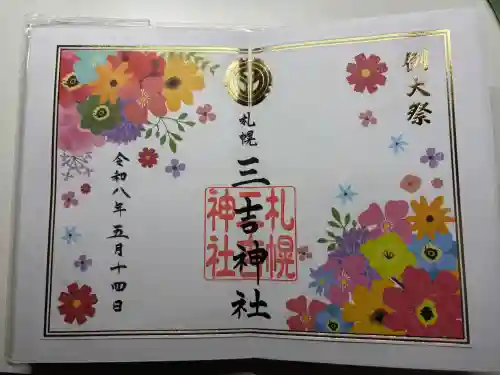 例大祭
札幌
三吉神社
札幌
三吉
神社
令和八年五月十四日